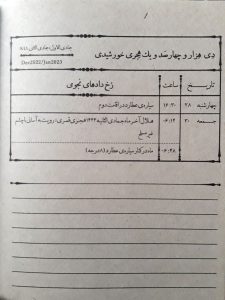 دی هزار و چهارصد و یک هجری خورشیدی
جمادی‌الاولی/جمادی‌الثانی ۱۴۴۴
Dec2022/Jan2023
تاریخ ساعت رخ‌دادهای نجومی
چهارشنبه ۲۸ ۱۶:۳۰ سیاره‌ی عطارد در اقامت دوم
جمعه ۳۰ ۰۶:۱۲ هلال آخر ماه جمادی‌الثانیه ۱۴۴۴ هجری قمری: رویت به آسانی با چشم
غیرمسلح
۰۶:۳۸ ماه در کنار سیاره‌ی عطارد (۸ درجه)